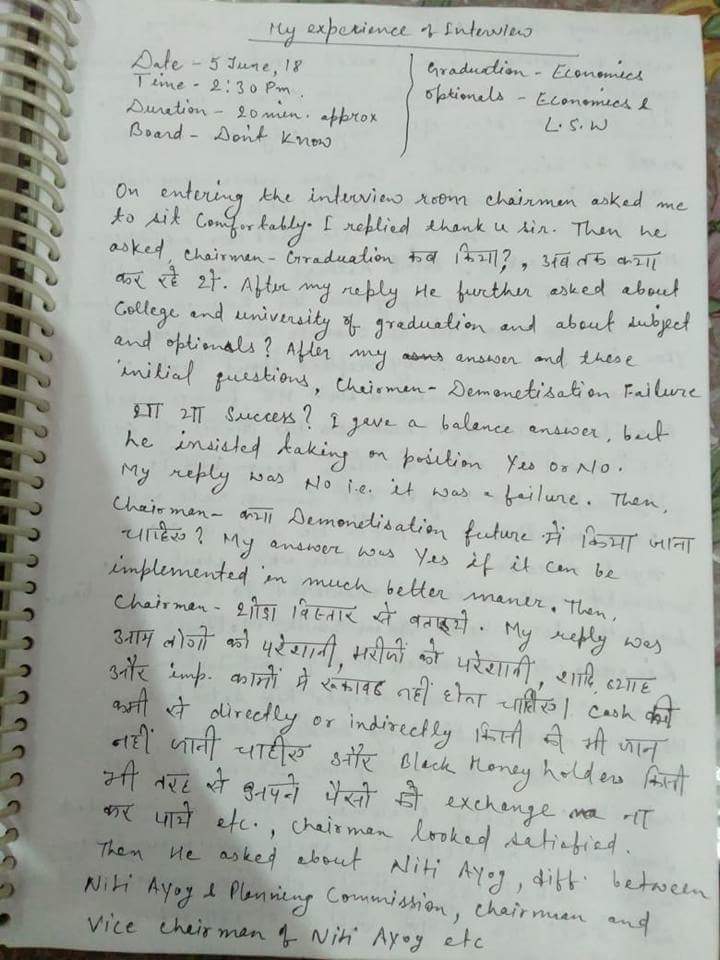 My experience of Interview
Date - 5 June, 18
Time - 2:30 Pm.
Duration - 20 min. approx
Board - Don't Know
Graduation - Economics
Optionals - Economics &
L.S.W
On entering the interview room chairmen asked me
to sit Comfortably. I replied thank u sir. Then he
asked, Chairman - Graduation कब किया?, अब तक क्या
कर रहे थे. After my reply He further asked about
College and university of graduation and about subject
and optionals? After my answer and these
initial questions, Chairman - Demonetisation Failure
था या Success? I gave a balance answer, but
he insisted taking on position Yes or No.
My reply was No i.e. it was a failure. Then,
Chairman - क्या Demonetisation future में किया जाना
चाहिए? My answer was Yes if it can be
implemented in much better maner. Then,
Chairman - थोड़ा विस्तार से बताइये. My reply was
आम लोगों को परेशानी, मरीजों को परेशानी, शादि ब्याह
और imp. कामों में रूकावट नहीं होना चाहिए। Cash की
कमी से directly or indirectly किसी की भी जान
नहीं जानी चाहीए और Black Money holders किसी
भी तरह से अपने पैसो को exchange ना
कर पाये etc., Chairman looked satisfied.
Then He asked about Niti Ayog, diff. between
Niti Ayog & Planning Commission, Chairman and
Vice Chairman of Niti Ayog etc